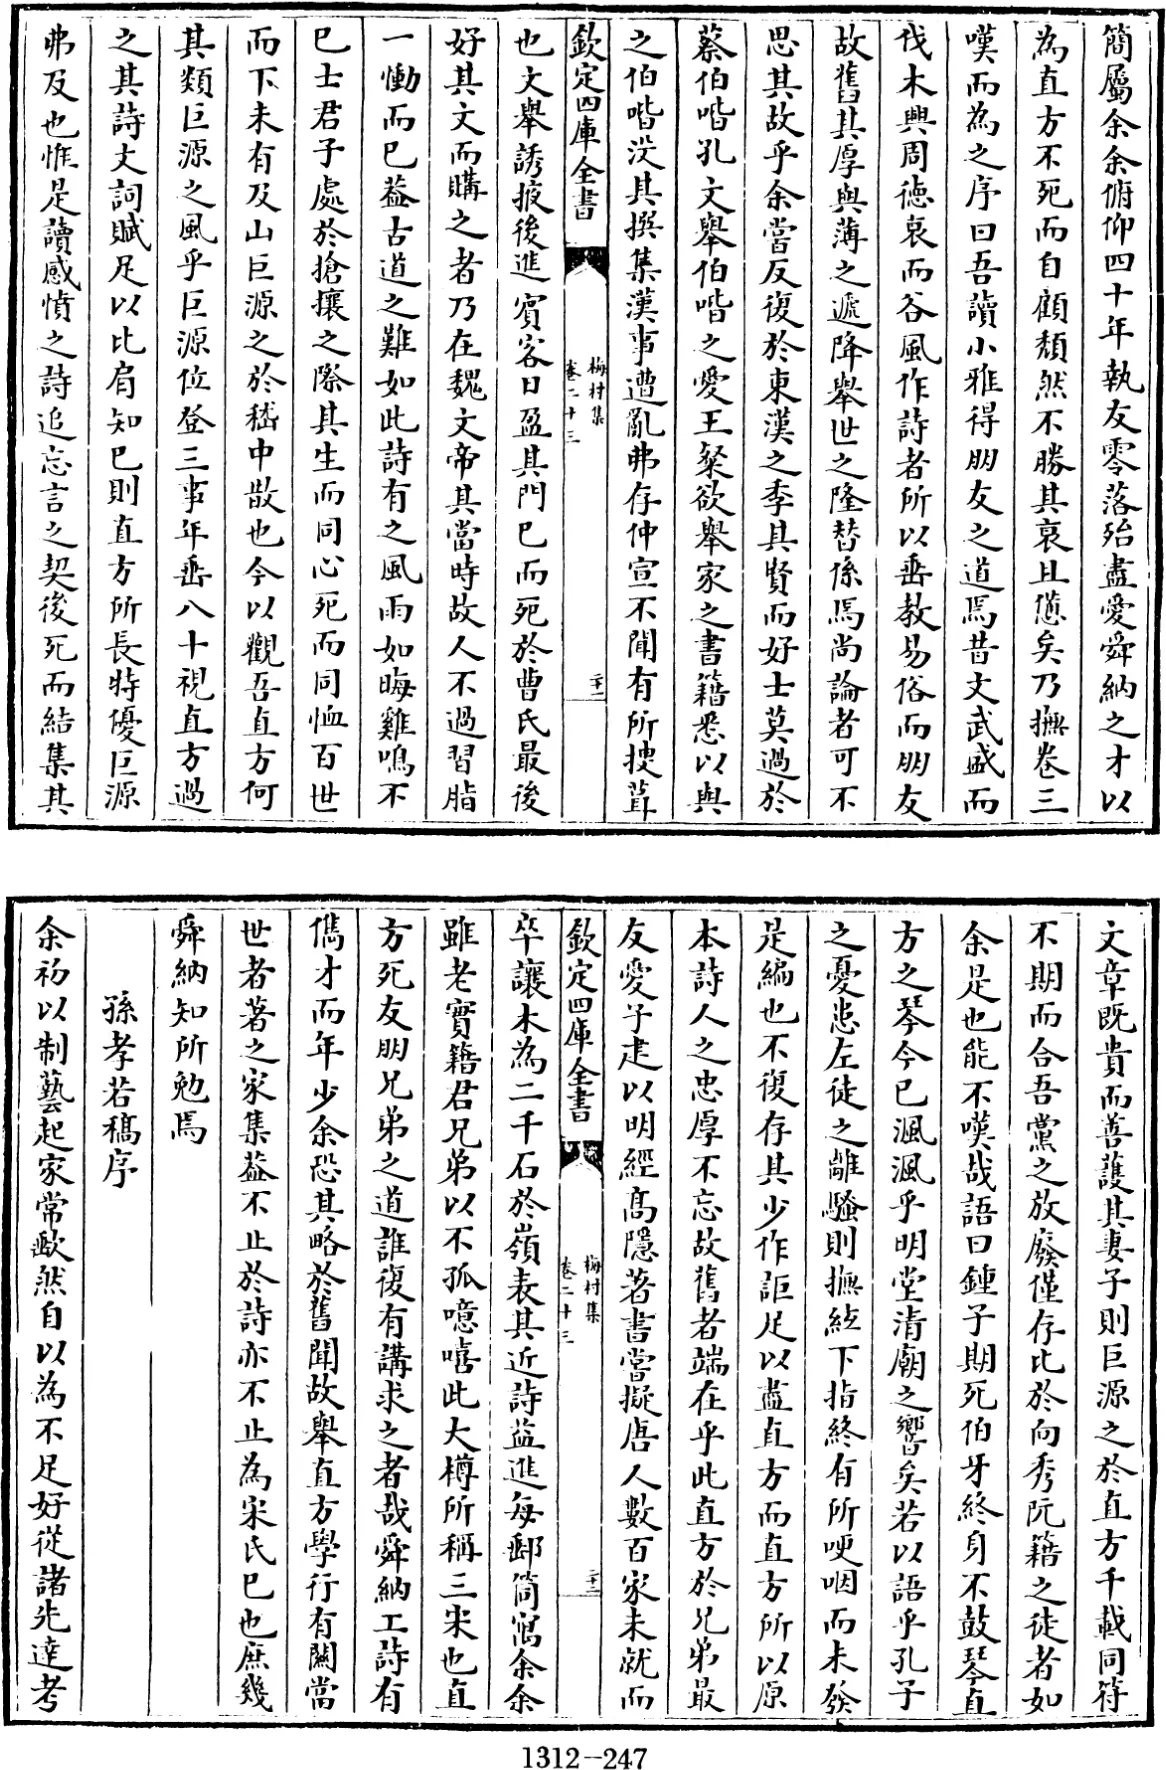 簡屬余余俯仰四十年執友零落殆盡愛舜納之才以
為直方不死而自顧頽然不勝其哀且憊矣乃撫卷三
嘆而為之序曰吾讀小雅得朋友之道焉昔文武盛而
伐木興周徳衰而谷風作詩者所以垂教易俗而朋友
故舊其厚與薄之遞降舉世之隆替係焉尚論者可不
思其故乎余嘗反復於東漢之季其賢而好士莫過於
蔡伯喈孔文舉伯喈之愛王粲欲舉家之書籍悉以與
之伯喈没其撰集漢事遭亂弗存仲宣不聞有所捜葺
欽定四庫全書
梅村集
卷二十三
二十一
也文舉誘掖後進賓客日盈其門已而死於曹氏最後
好其文而購之者乃在魏文帝其當時故人不過習脂
一慟而已葢古道之難如此詩有之風雨如晦雞鳴不
已士君子處於搶攘之際其生而同心死而同恤百世
而下未有及山巨源之於嵇中散也今以觀吾直方何
其類巨源之風乎巨源位登三事年垂八十視直方過
之其詩文詞賦足以比肩知已則直方所長特優巨源
弗及也惟是讀感憤之詩追忘言之契後死而結集其
文章既貴而善䕶其妻子則巨源之於直方千載同符
不期而合吾黨之放廢僅存比於向秀阮籍之徒者如
余是也能不嘆哉語曰鍾子期死伯牙終身不鼓琴直
方之琴今已渢渢乎明堂清廟之響矣若以語乎孔子
之憂患左徒之離騷則撫絃下指終有所哽咽而未發
是編也不復存其少作詎足以盡直方而直方所以原
本詩人之忠厚不忘故舊者端在乎此直方於兄弟最
友愛子建以明經高隱著書嘗擬唐人數百家未就而
欽定四庫全書
梅村集
卷二十三
二十二
卒讓木為二千石於嶺表其近詩益進每郵筒寓余余
雖老實籍君兄弟以不孤噫嘻此大樽所稱三宋也直
方死友朋兄弟之道誰復有講求之者哉舜納工詩有
儁才而年少余恐其略於舊聞故舉直方學行有闗當
世者著之家集葢不止於詩亦不止為宋氏已也庶幾
舜納知所勉焉
孫孝若稿序
余初以制藝起家常歉然自以為不足好從諸先達考
1312-247